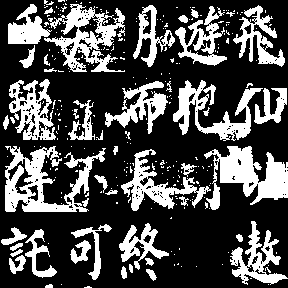 飛仙以遨
遊抱明
月而長終
知不可
乎驟得託